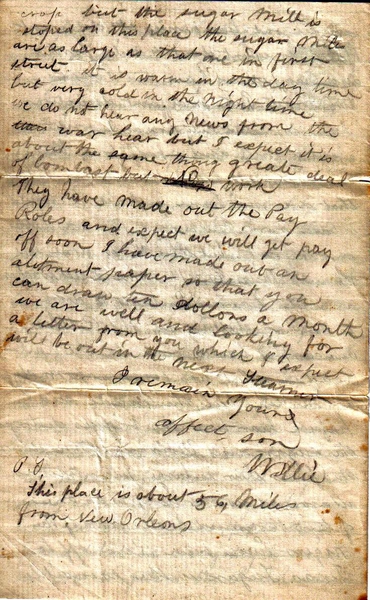 crop but the sugar Mill is
sloped on this place the sugar Mills
are as large as that one in first
street it is warm in the day time
but very cold in the night time
we do not hear any News from the
war hear but I expect it is
about the same thing greate deal
of bombast but work
They have made out the Pay
Roles and expect we will get pay
off soon I have made out an
alotment paper so that you
can draw ten dollons a Month
we are well and looking for
a letter from you which I expect
will be out in the next Steamer
I remain your
affect son
Willie
P S
This place is about 56 Miles
from New Orleans